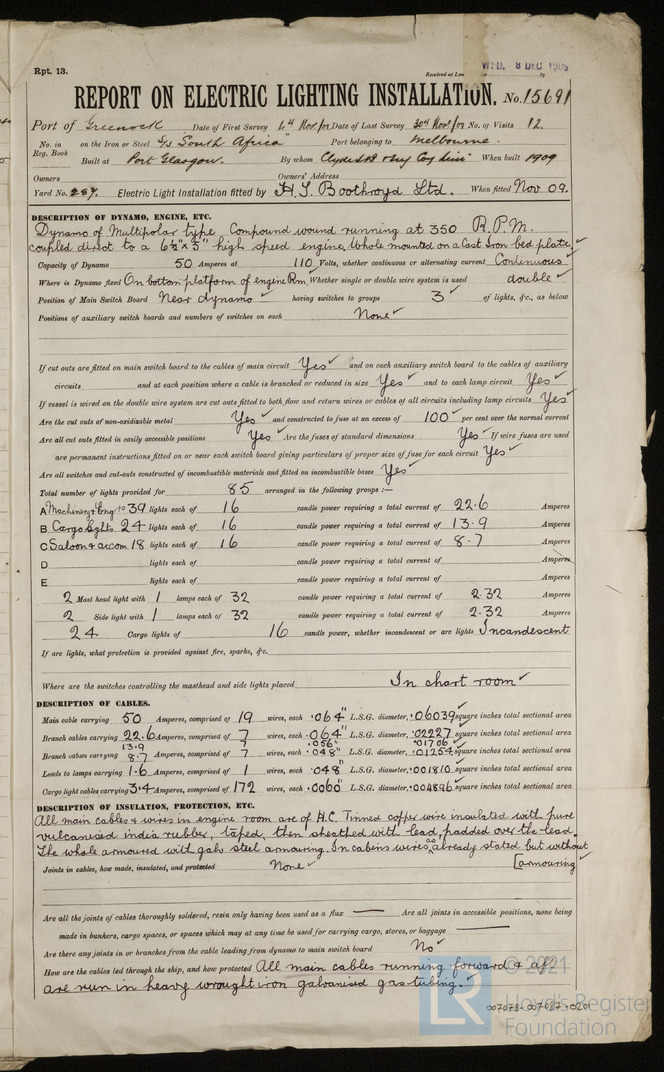 Rpt. 13.
WED. 8 DEC 1909
REPORT ON ELECTRIC LIGHTING INSTALLATION. No. 15691
Port of Greenock Date of First Survey Date of Last Survey No. of Visits 12.
No. in Reg. Book on the Iron or Steel S/S "South Africa" Port belonging to Melbourne.
Built at Port Glasgow. By whom When built 1909
Owners Owners' Address
Yard No. 287. Electric Light Installation fitted by H. S. Boothroyd Ltd. When fitted Nov 09.
DESCRIPTION OF DYNAMO, ENGINE, ETC.
Dynamo of Multipolar type, Compound wound running at 350 R.P.M.
coupled direct to a 6½" x 5" high speed engine, Whole mounted on a Cast Iron bed plate.
Capacity of Dynamo 50 Amperes at 110 Volts, whether continuous or alternating current Continuous
Where is Dynamo fixed On bottom platform of engine Rm. Whether single or double wire system is used double
Position of Main Switch Board Near dynamo having switches to groups 3 of lights, &c., as below
Positions of auxiliary switch boards and numbers of switches on each None
If cut outs are fitted on main switch board to the cables of main circuit Yes and on each auxiliary switch board to the cables of auxiliary
circuits and at each position where a cable is branched or reduced in size Yes and to each lamp circuit Yes
If vessel is wired on the double wire system are cut outs fitted to both flow and return wires or cables of all circuits including lamp circuits Yes
Are the cut outs of non-oxidizable metal Yes and constructed to fuse at an excess of 100 per cent over the normal current
Are all cut outs fitted in easily accessible positions Yes Are the fuses of standard dimensions Yes If wire fuses are used
are permanent instructions fitted on or near each switch board giving particulars of proper size of fuse for each circuit Yes
Are all switches and cut-outs constructed of incombustible materials and fitted on incombustible bases Yes
Total number of lights provided for 85 arranged in the following groups :—
A Machinery & Eng rs 39 lights each of 16 candle power requiring a total current of 22.6 Amperes
B Cargo lights 24 lights each of 16 candle power requiring a total current of 13.9 Amperes
C Saloon & accom 18 lights each of 16 candle power requiring a total current of 8.7 Amperes
D lights each of candle power requiring a total current of Amperes
E lights each of candle power requiring a total current of Amperes
2 Mast head light with 1 lamps each of 32 candle power requiring a total current of 2.32 Amperes
2 Side light with 1 lamps each of 32 candle power requiring a total current of 2.32 Amperes
24 Cargo lights of 16 candle power, whether incandescent or arc lights Incandescent
If arc lights, what protection is provided against fire, sparks, &c.
Where are the switches controlling the masthead and side lights placed In chart room
DESCRIPTION OF CABLES.
Main cable carrying 50 Amperes, comprised of 19 wires, each .064" L.S.G. diameter, .06039 square inches total sectional area
Branch cables carrying 22.6 Amperes, comprised of 7 wires, each .064" L.S.G. diameter, .02227 square inches total sectional area
13.9 7 .056" .01706
Branch cables carrying 8.7 Amperes, comprised of 7 wires, each .048" L.S.G. diameter, .01254 square inches total sectional area
Leads to lamps carrying 1.6 Amperes, comprised of 1 wires, each .048" L.S.G. diameter, .001810 square inches total sectional area
Cargo light cables carrying 3.4 Amperes, comprised of 172 wires, each .0060" L.S.G. diameter, .004896 square inches total sectional area
DESCRIPTION OF INSULATION, PROTECTION, ETC.
All main cables & wires in engine room are of H.C. Tinned copper wire insulated with pure
vulcanised india rubber, taped, then sheathed with lead, padded over the lead.
The whole armoured with galv steel armouring. In cabins wires as already stated but without
[armouring
Joints in cables, how made, insulated, and protected None
Are all the joints of cables thoroughly soldered, resin only having been used as a flux — Are all joints in accessible positions, none being
made in bunkers, cargo spaces, or spaces which may at any time be used for carrying cargo, stores, or baggage —
Are there any joints in or branches from the cable leading from dynamo to main switch board No
How are the cables led through the ship, and how protected All main cables running forward & aft
are run in heavy wrought iron galvanised gas tubing.
© 2021
LR Lloyd's Register
Foundation
007078-007087-0201